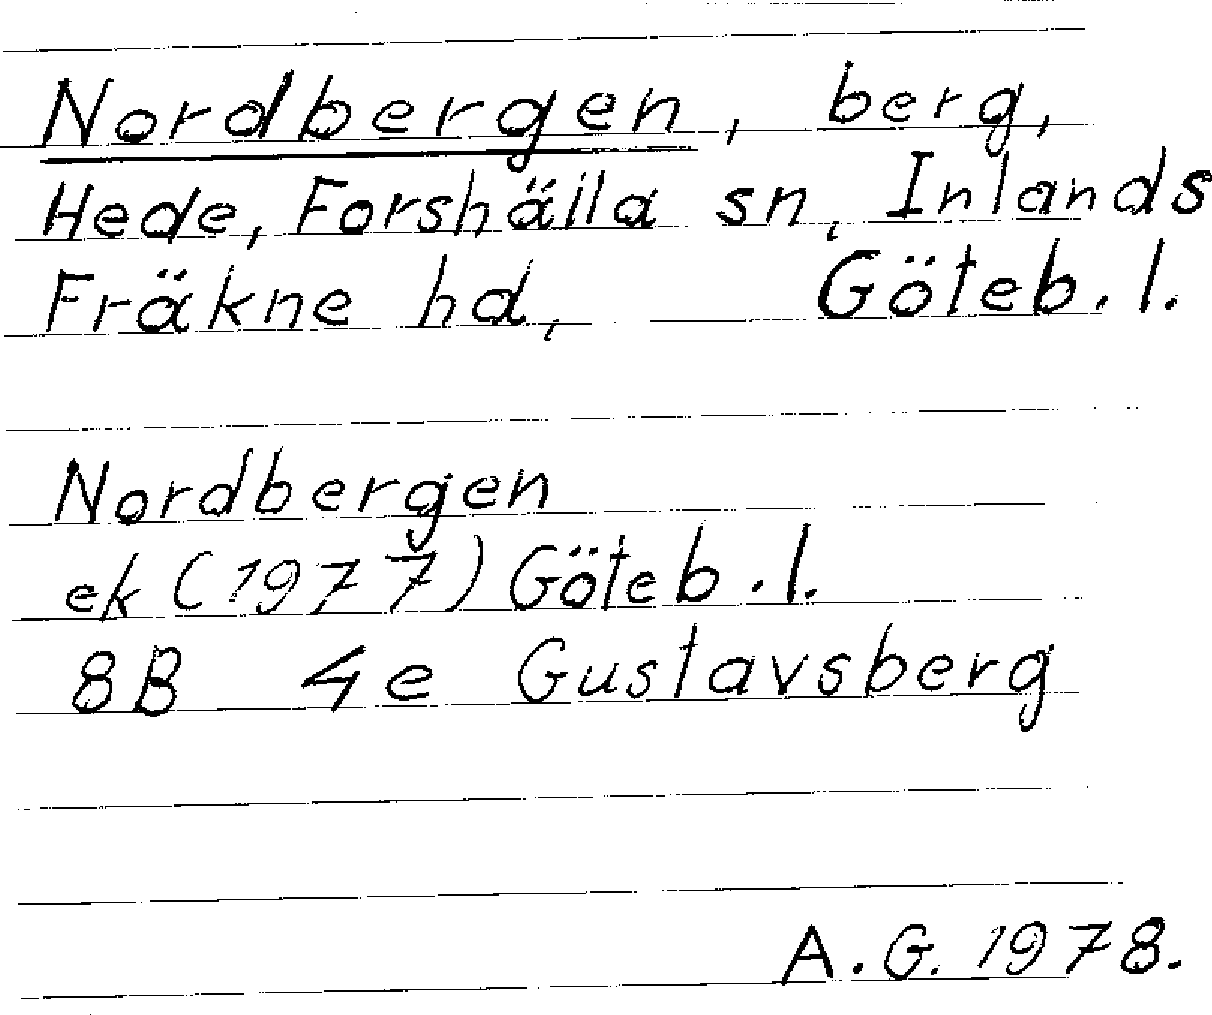 Nordbergen, berg,
Hede, Forshälla sn, Inlands
Fräkne hd, Göteb.l.
Nordbergen
ek (1977) Göteb.l.
8B 4e Gustavsberg
A.G. 1978.